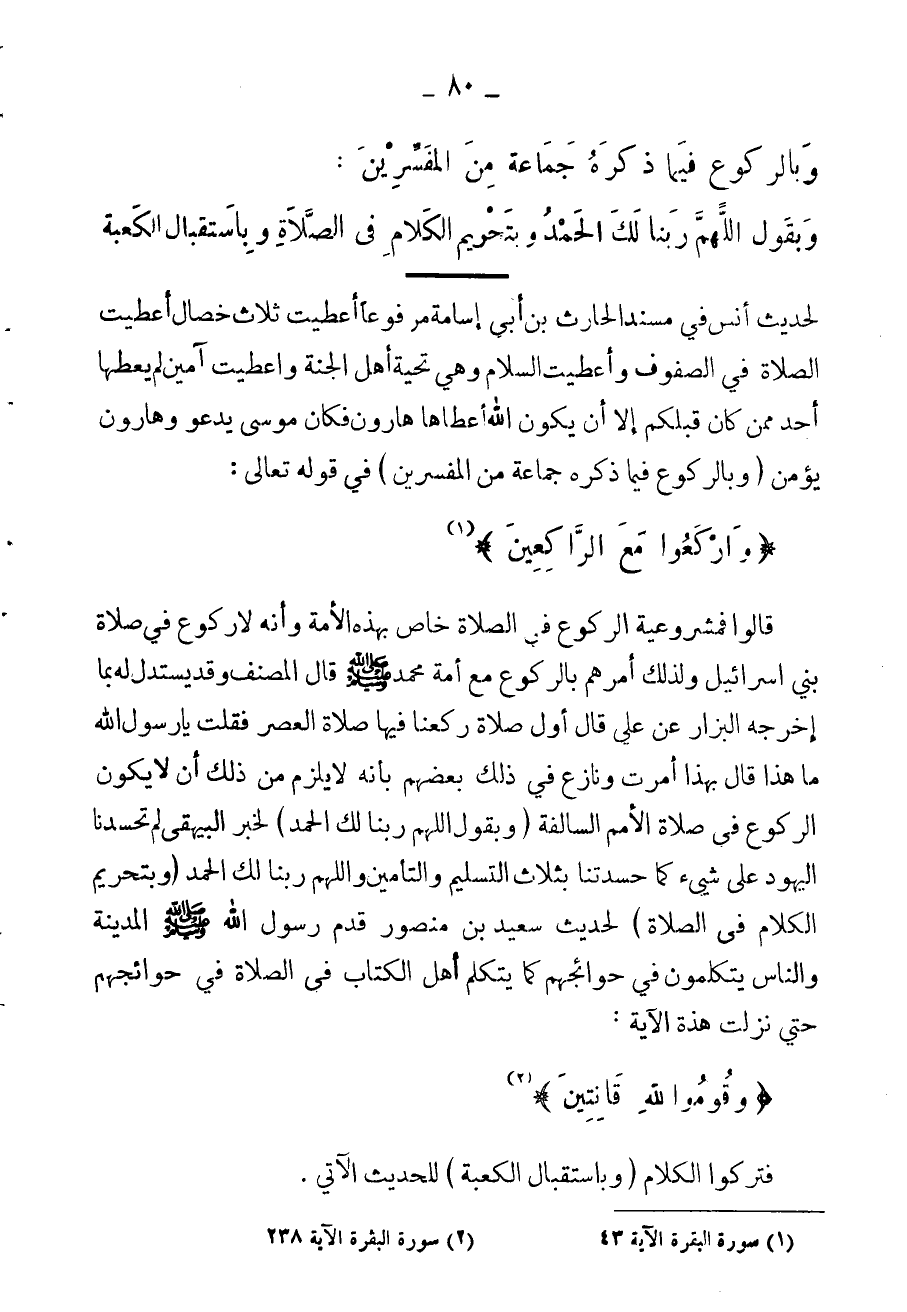 ـ ٨٠ ـ
وَبالركوع فيَما ذكرَهُ جَمَاعة مِنَ المفَسِّرِيْنَ :
وَبقَول اللَّهمَّ رَبنا لكَ الحَمْدُ وبتَحْويم الكَلامِ فى الصَّلاَةِ وبِاسَتقبال الكَعبة
لحديث أنس في مسند الحارث بن أبي إسامة مرفوعاً أعطيت ثلاث خصال أعطيت
الصلاة في الصفوف وأعطيت السلام وهي تحية أهل الجنة واعطيت آمين لم يعطها
أحد ممن كان قبلكم إلا أن يكون الله أعطاها هارون فكان موسى يدعو وهارون
يؤمن ( وبالركوع فيما ذكره جماعة من المفسرين ) في قوله تعالى :
﴿ وَارْكَعُوا مَعَ الرَّاكِعِينَ ﴾(١)
قالوا فمشروعية الركوع في الصلاة خاص بهذه الأمة وأنه لاركوع في صلاة
بني اسرائيل ولذلك أمرهم بالركوع مع أمة محمد ﷺ قال المصنف وقد يستدل له بما
إخرجه البزار عن علي قال أول صلاة ركعنا فيها صلاة العصر فقلت يارسول الله
ما هذا قال بهذا أمرت ونازع في ذلك بعضهم بأنه لايلزم من ذلك أن لايكون
الركوع في صلاة الأمم السالفة ( وبقول اللهم ربنا لك الحمد ) لخبر البيهقى لم تحسدنا
اليهود على شيء كما حسدتنا بثلاث التسليم والتأمين واللهم ربنا لك الحمد (وبتحريم
الكلام فى الصلاة ) لحديث سعيد بن منصور قدم رسول الله ﷺ المدينة
والناس يتكلمون في حوائجهم كما يتكلم أهل الكتاب فى الصلاة في حوائجهم
حتي نزلت هذة الآية :
﴿ وقُومُوا للهِ قَانِتِينَ ﴾(٢)
فتركوا الكلام ( وباستقبال الكعبة ) للحديث الآتي .
(١) سورة البقرة الآية ٤٣ (٢) سورة البقرة الآية ٢٣٨